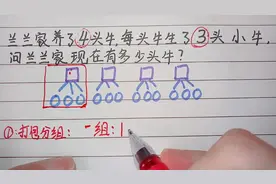 兰兰家养了4头牛,每头牛生了3头小牛,
问兰兰家现在有多少头牛?
①打包分组:一组:1